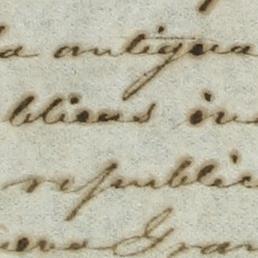 la antigua
blicas in
republic
ueva Gran